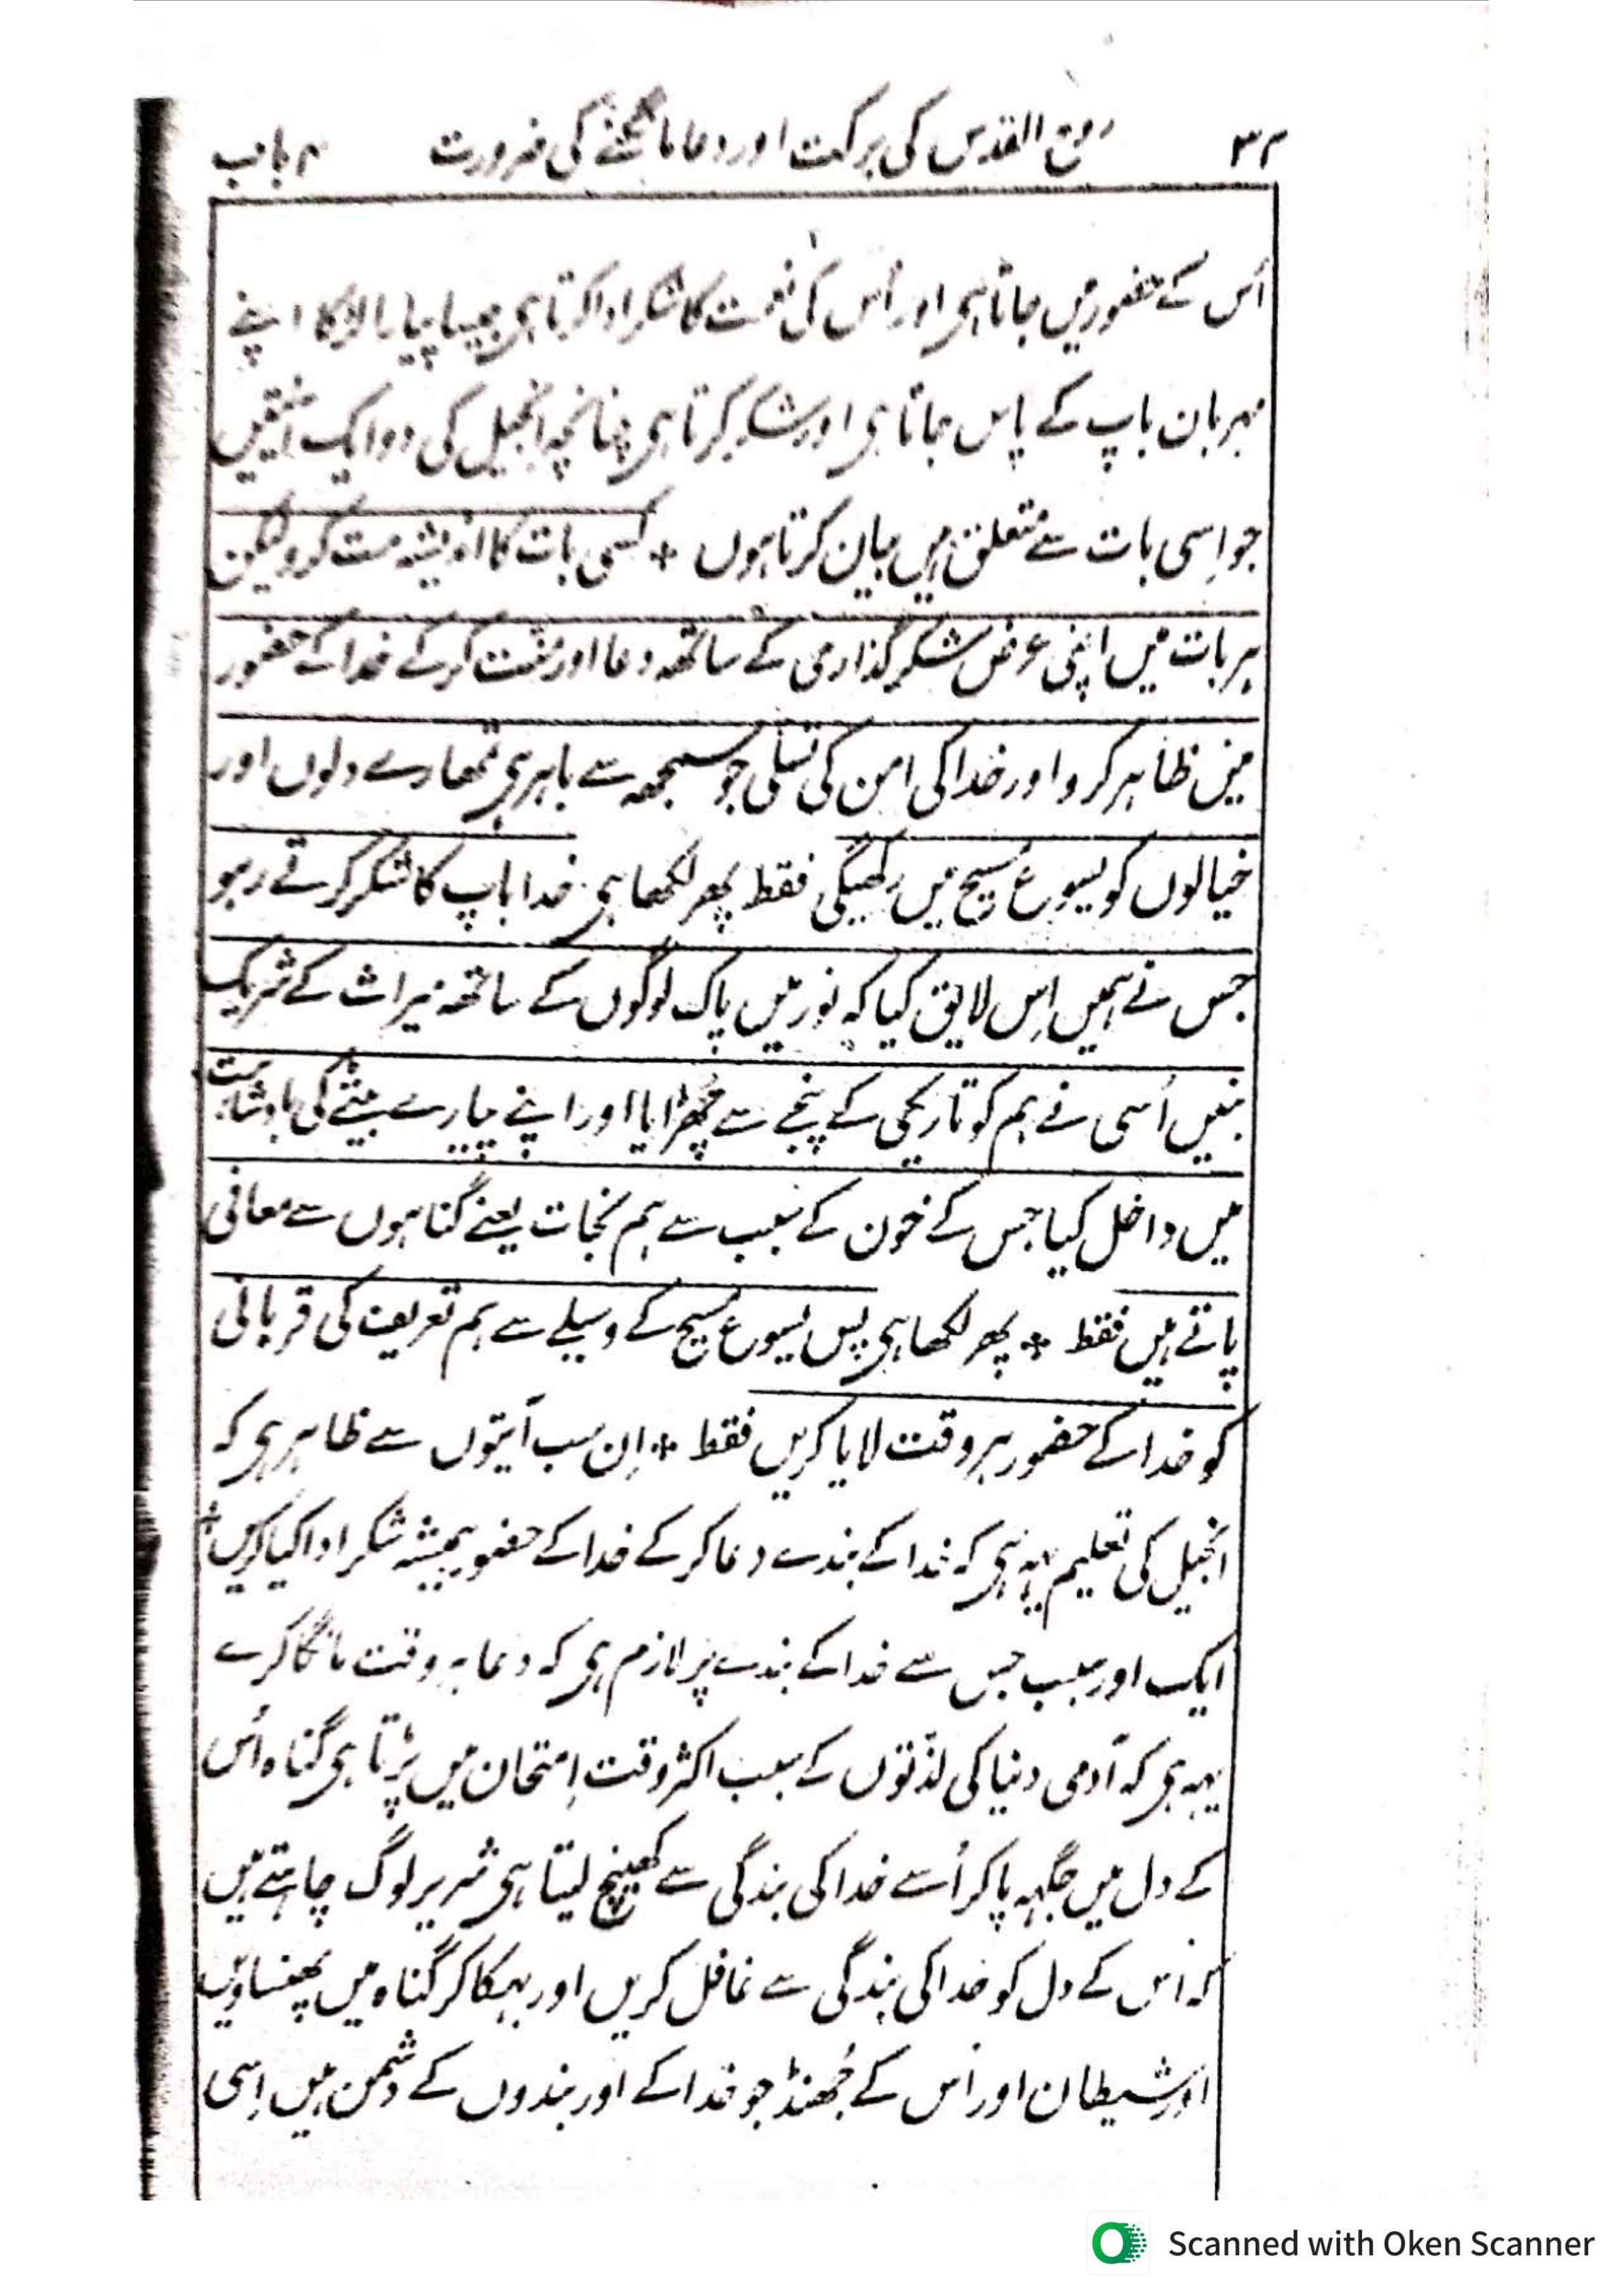 ۳۲ روح القدس کی برکت اور دعا مانگنے کی ضرورت ۴ باب
اُس کے حضور میں جاتا ہی اور اُس کی نعمت کا شکر ادا کرتا ہی جیسا پیارا لڑکا اپنے
مہربان باپ کے پاس جاتا ہی اور شکر کرتا ہی چنانچہ انجیل کی دو ایک آیتیں
جو اِسی بات سے متعلق ہیں بیان کرتا ہوں * کسی بات کا اندیشہ مت کرو لیکن
ہر بات میں اپنی عرض شکر گذاری کے ساتھہ دعا اور منت کر کے خدا کے حضور
میں ظاہر کرو اور خدا کی امن کی تسلی جو سمجھہ سے باہر ہی تمھارے دلوں اور
خیالوں کو یسوع مسیح میں رکھیگی فقط پھر لکھا ہی خدا باپ کا شکر کرتے رہو
جس نے ہمیں اِس لایق کیا کہ نور میں پاک لوگوں کے ساتھہ میراث کے شریک
بنیں اُسی نے ہم کو تاریکی کے پنجے سے چُھڑایا اور اپنے پیارے بیٹے کی بادشاہت
میں داخل کیا جس کے خون کے سبب سے ہم نجات یعنے گناہوں سے معافی
پاتے ہیں فقط * پھر لکھا ہی پس یسوع مسیح کے وسیلے سے ہم تعریف کی قربانی
کو خدا کے حضور ہر وقت لایا کریں فقط * اِن سب آیتوں سے ظاہر ہی کہ
انجیل کی تعلیم یہہ ہی کہ خدا کے بندے دعا کر کے خدا کے حضور ہمیشہ شکر ادا کیا کریں *
ایک اور سبب جس سے خدا کے بندے پر لازم ہی کہ دعا ہر وقت مانگا کرے
یہہ ہی کہ آدمی دنیا کی لذّتوں کے سبب اکثر وقت اِمتحان میں پڑتا ہی گناہ اُس
کے دل میں جگہہ پا کر اُسے خدا کی بندگی سے کھینچ لیتا ہی شریر لوگ چاہتے ہیں
کہ اُس کے دل کو خدا کی بندگی سے غافل کریں اور بہکا کر گناہ میں پھنساویں
اور شیطان اور اُس کے جُھنڈ جو خدا کے اور بندوں کے دشمن ہیں اِسی
Scanned with Oken Scanner